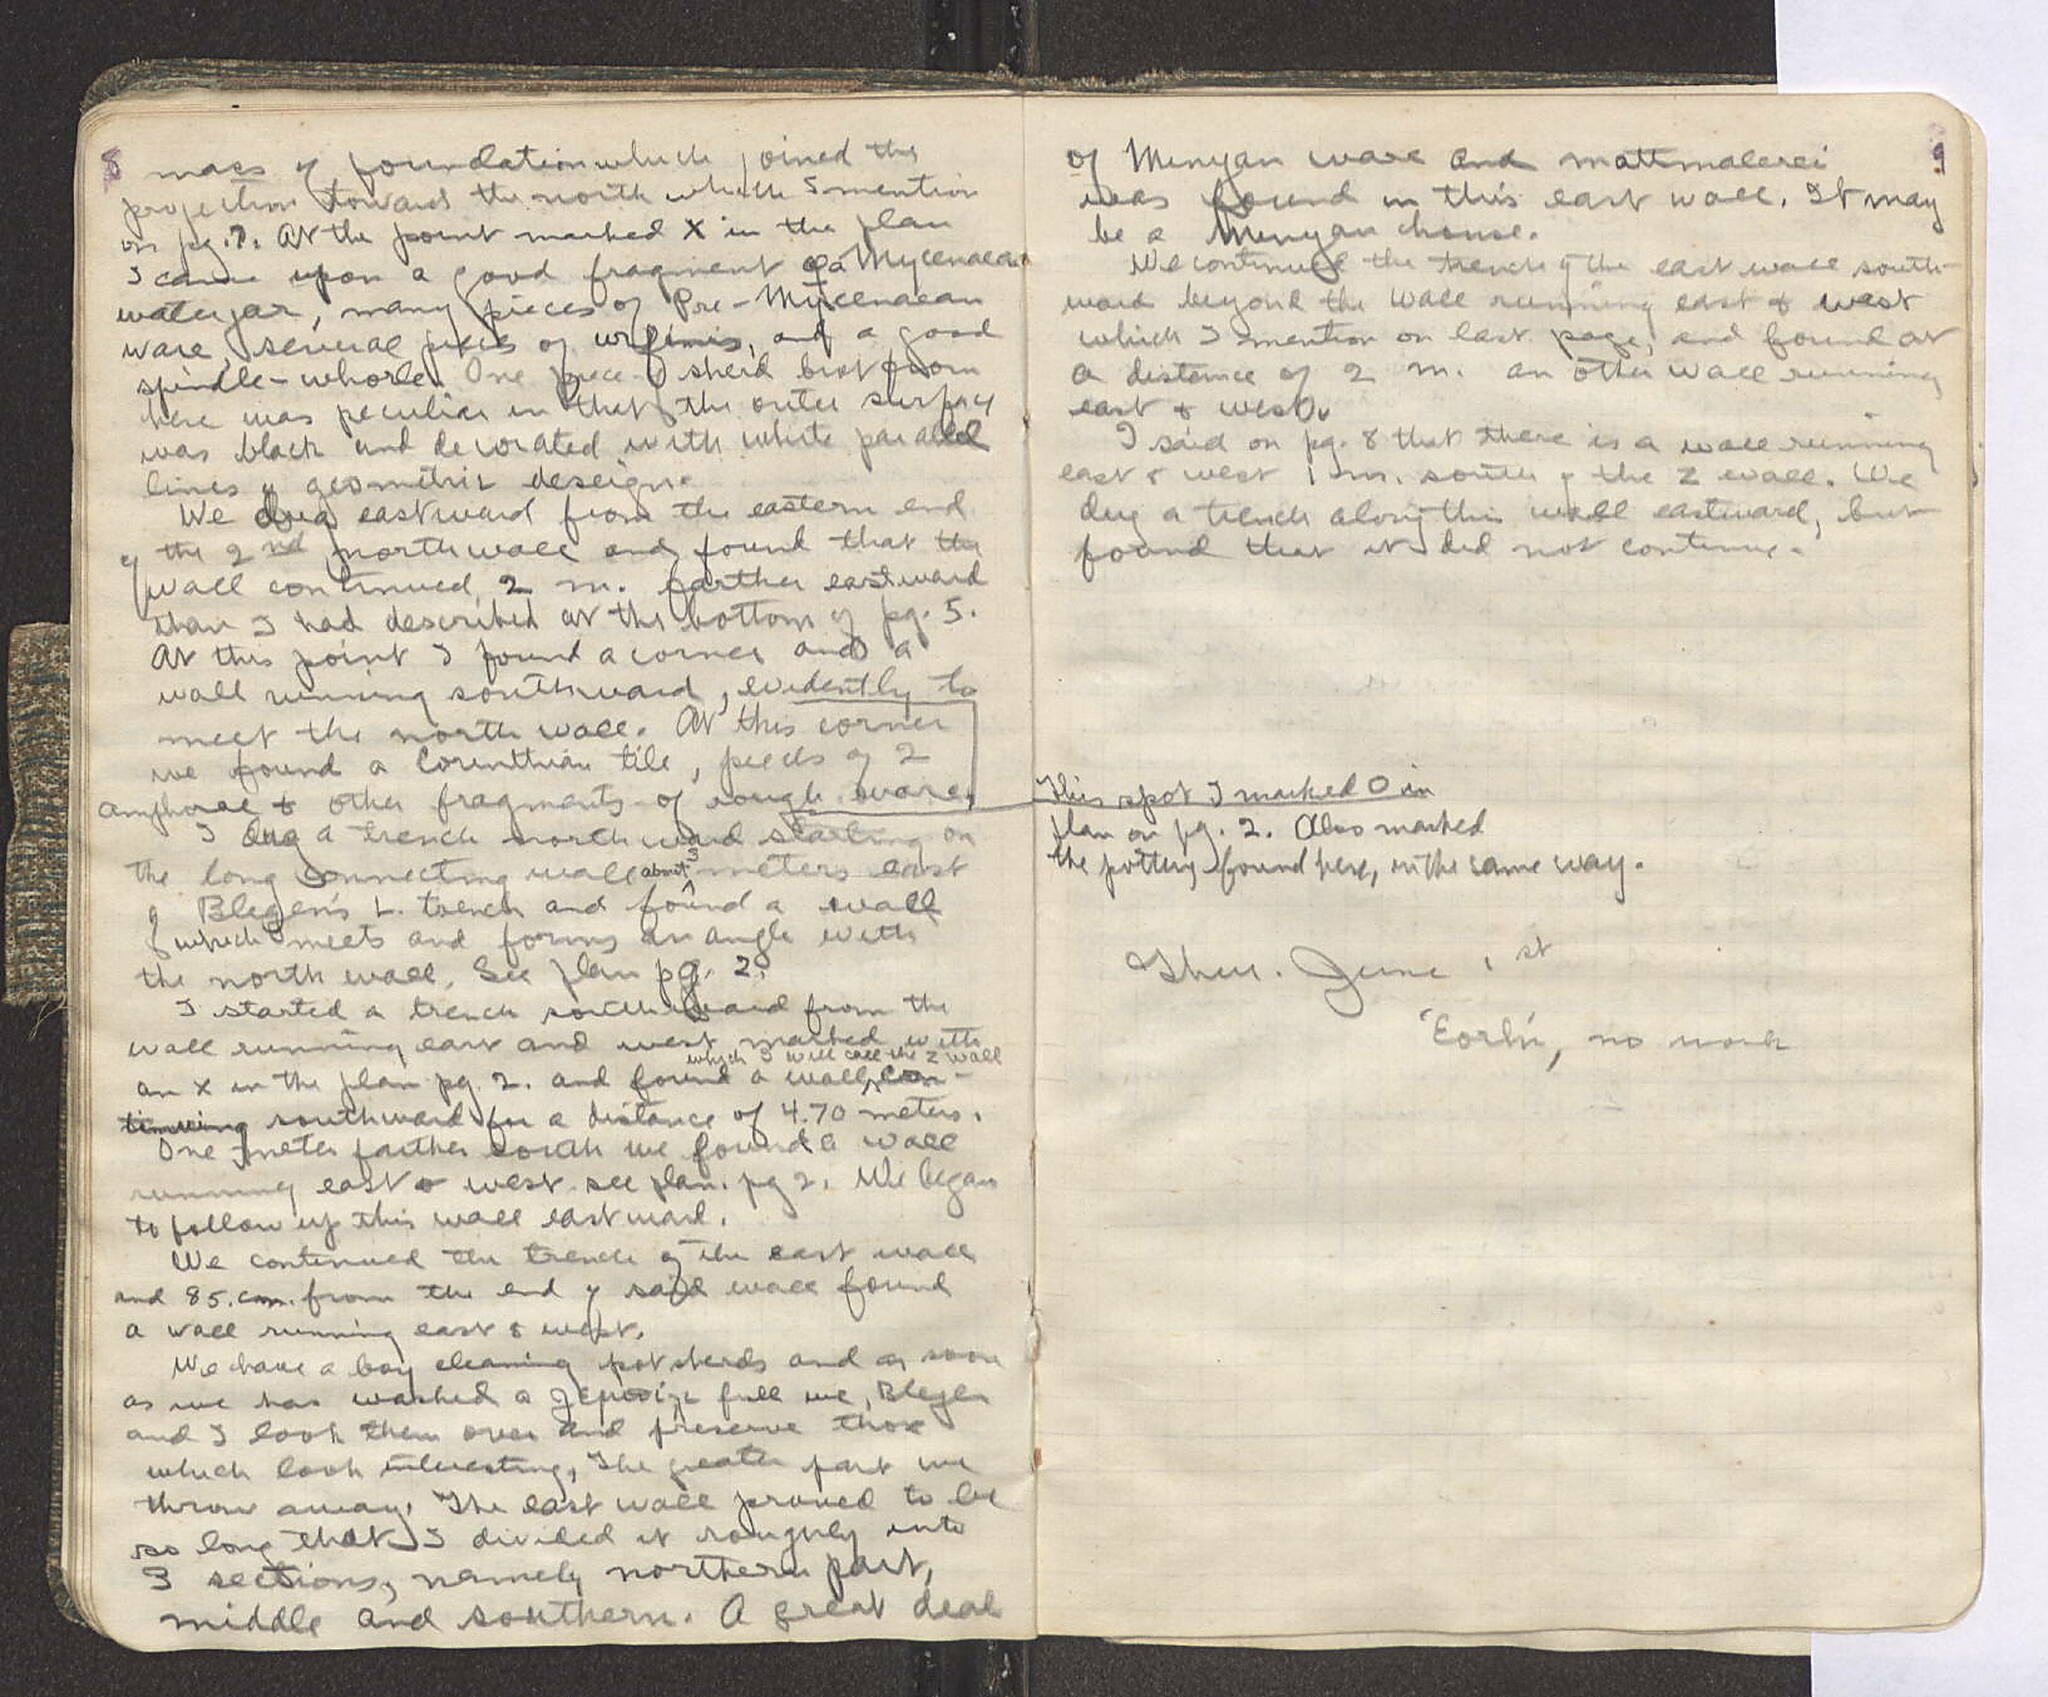 8
mass of foundation which joined the
projection toward the north which I mention
on pg. 7. At the point marked X in the plan
I came upon a good fragment of a Mycenaean
waterjar, many pieces of Pre-Mycenaean
ware, several pieces of urfirnis, and a good
spindle-whorle. One piece of sherd brot from
here was peculiar in that the outer surface
was black and decorated with white parallel
lines of geometric deseign.
We dug eastward from the eastern end
of the 2nd north wall and found that the
wall continued 2 m. farther eastward
than I had described at the bottom of pg. 5.
At this point I found a corner and a
wall running southward, evidently to
meet the north wall. At this corner
we found a Corinthian tile, pieces of 2
amphorae & other fragments of rough ware.
I dug a trench northward starting on
the long connecting wall about 3 meters east
of Blegen's L. trench and found a wall
which meets and forms an angle with
the north wall. See plan pg. 2.
I started a trench southward from the
wall running east and west marked with
which I will call the Z wall
an X in the plan pg. 2. and found a wall, con-
tinuing southward for a distance of 4.70 meters.
One meter farther south we found a wall
running east & west. see plan. pg 2. We began
to follow up this wall eastward.
We continued the trench of the east wall
and 85. cm. from the end of said wall found
a wall running east & west.
We have a boy cleaning potsherds and as soon
as we has washed a full we, Blegen
and I look them over and preserve those
which look interesting, The greater part we
throw away. The east wall proved to be
so long that I divided it roughly into
3 sections, namely northern part,
middle and southern. A great deal
9
of Minyan ware and mattmalerei
was found in this east wall. It may
be a Minyan house.
We continued the trench of the east wall south-
ward beyond the wall running east & west
which I mention on last page, and found at
a distance of 2 m. an other wall running
east & west.
I said on pg. 8 that there is a wall running
east & west 1 m. south of the Z wall. We
dug a trench along this wall eastward, but
found that it did not continue.
This spot I marked O in
plan on pg. 2. Also marked
the pottery found here, in the same way.
Thur. June 1st
no work